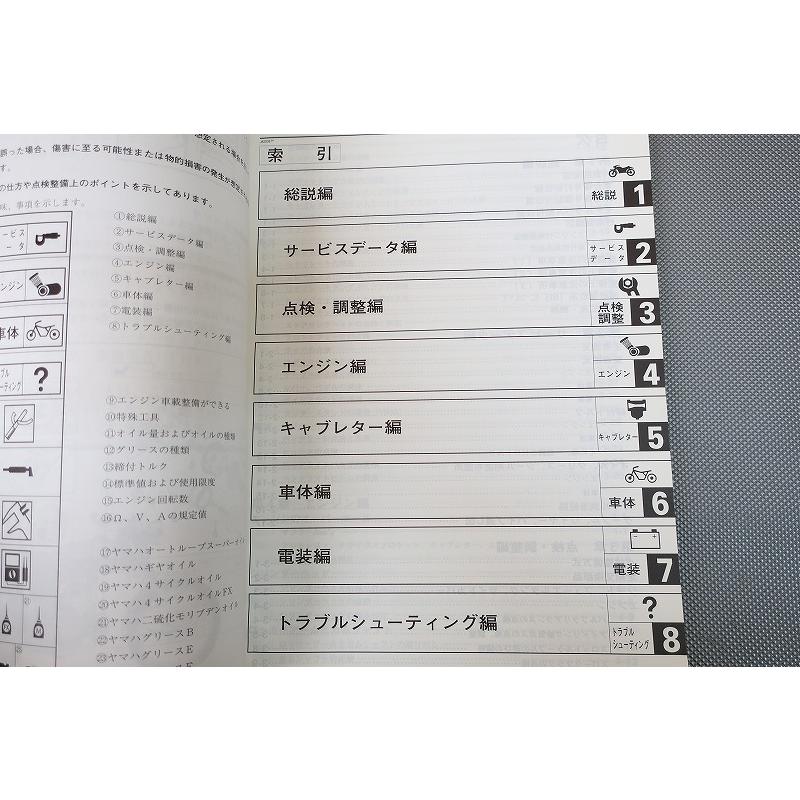 想定される場合
誤った場合、傷害に至る可能性または物的損害の発生が想定
す。
の仕方や点検整備上のポイントを示してあります。
味、事項を示します。
ービス
ータ
ンジン
車体
ブル
ューティング
?
①総説編
②サービスデータ編
③点検・調整編
④エンジン編
⑤キャブレター編
⑥車体編
⑦電装編
⑧トラブルシューティング編
⑨エンジン車載整備ができる
⑩特殊工具
⑪オイル量およびオイルの種類
⑫グリースの種類
⑬締付トルク
⑭標準値および使用限度
⑮エンジン回転数
⑯Ω、V、Aの規定値
⑰ヤマハオートルーブスーパーオイル
⑱ヤマハギヤオイル
⑲ヤマハ4サイクルオイル
⑳ヤマハ4サイクルオイルFX
㉑ヤマハ二硫化モリブデンオイル
㉒ヤマハグリースB
㉓ヤマハグリースE
索 引
総説編
総説 1
サービスデータ編
サービス
データ 2
点検・調整編
点検
調整 3
エンジン編
エンジン 4
キャブレター編
キャブレター 5
車体編
車体 6
電装編
電装 7
トラブルシューティング編
?
トラブル
シューティング 8